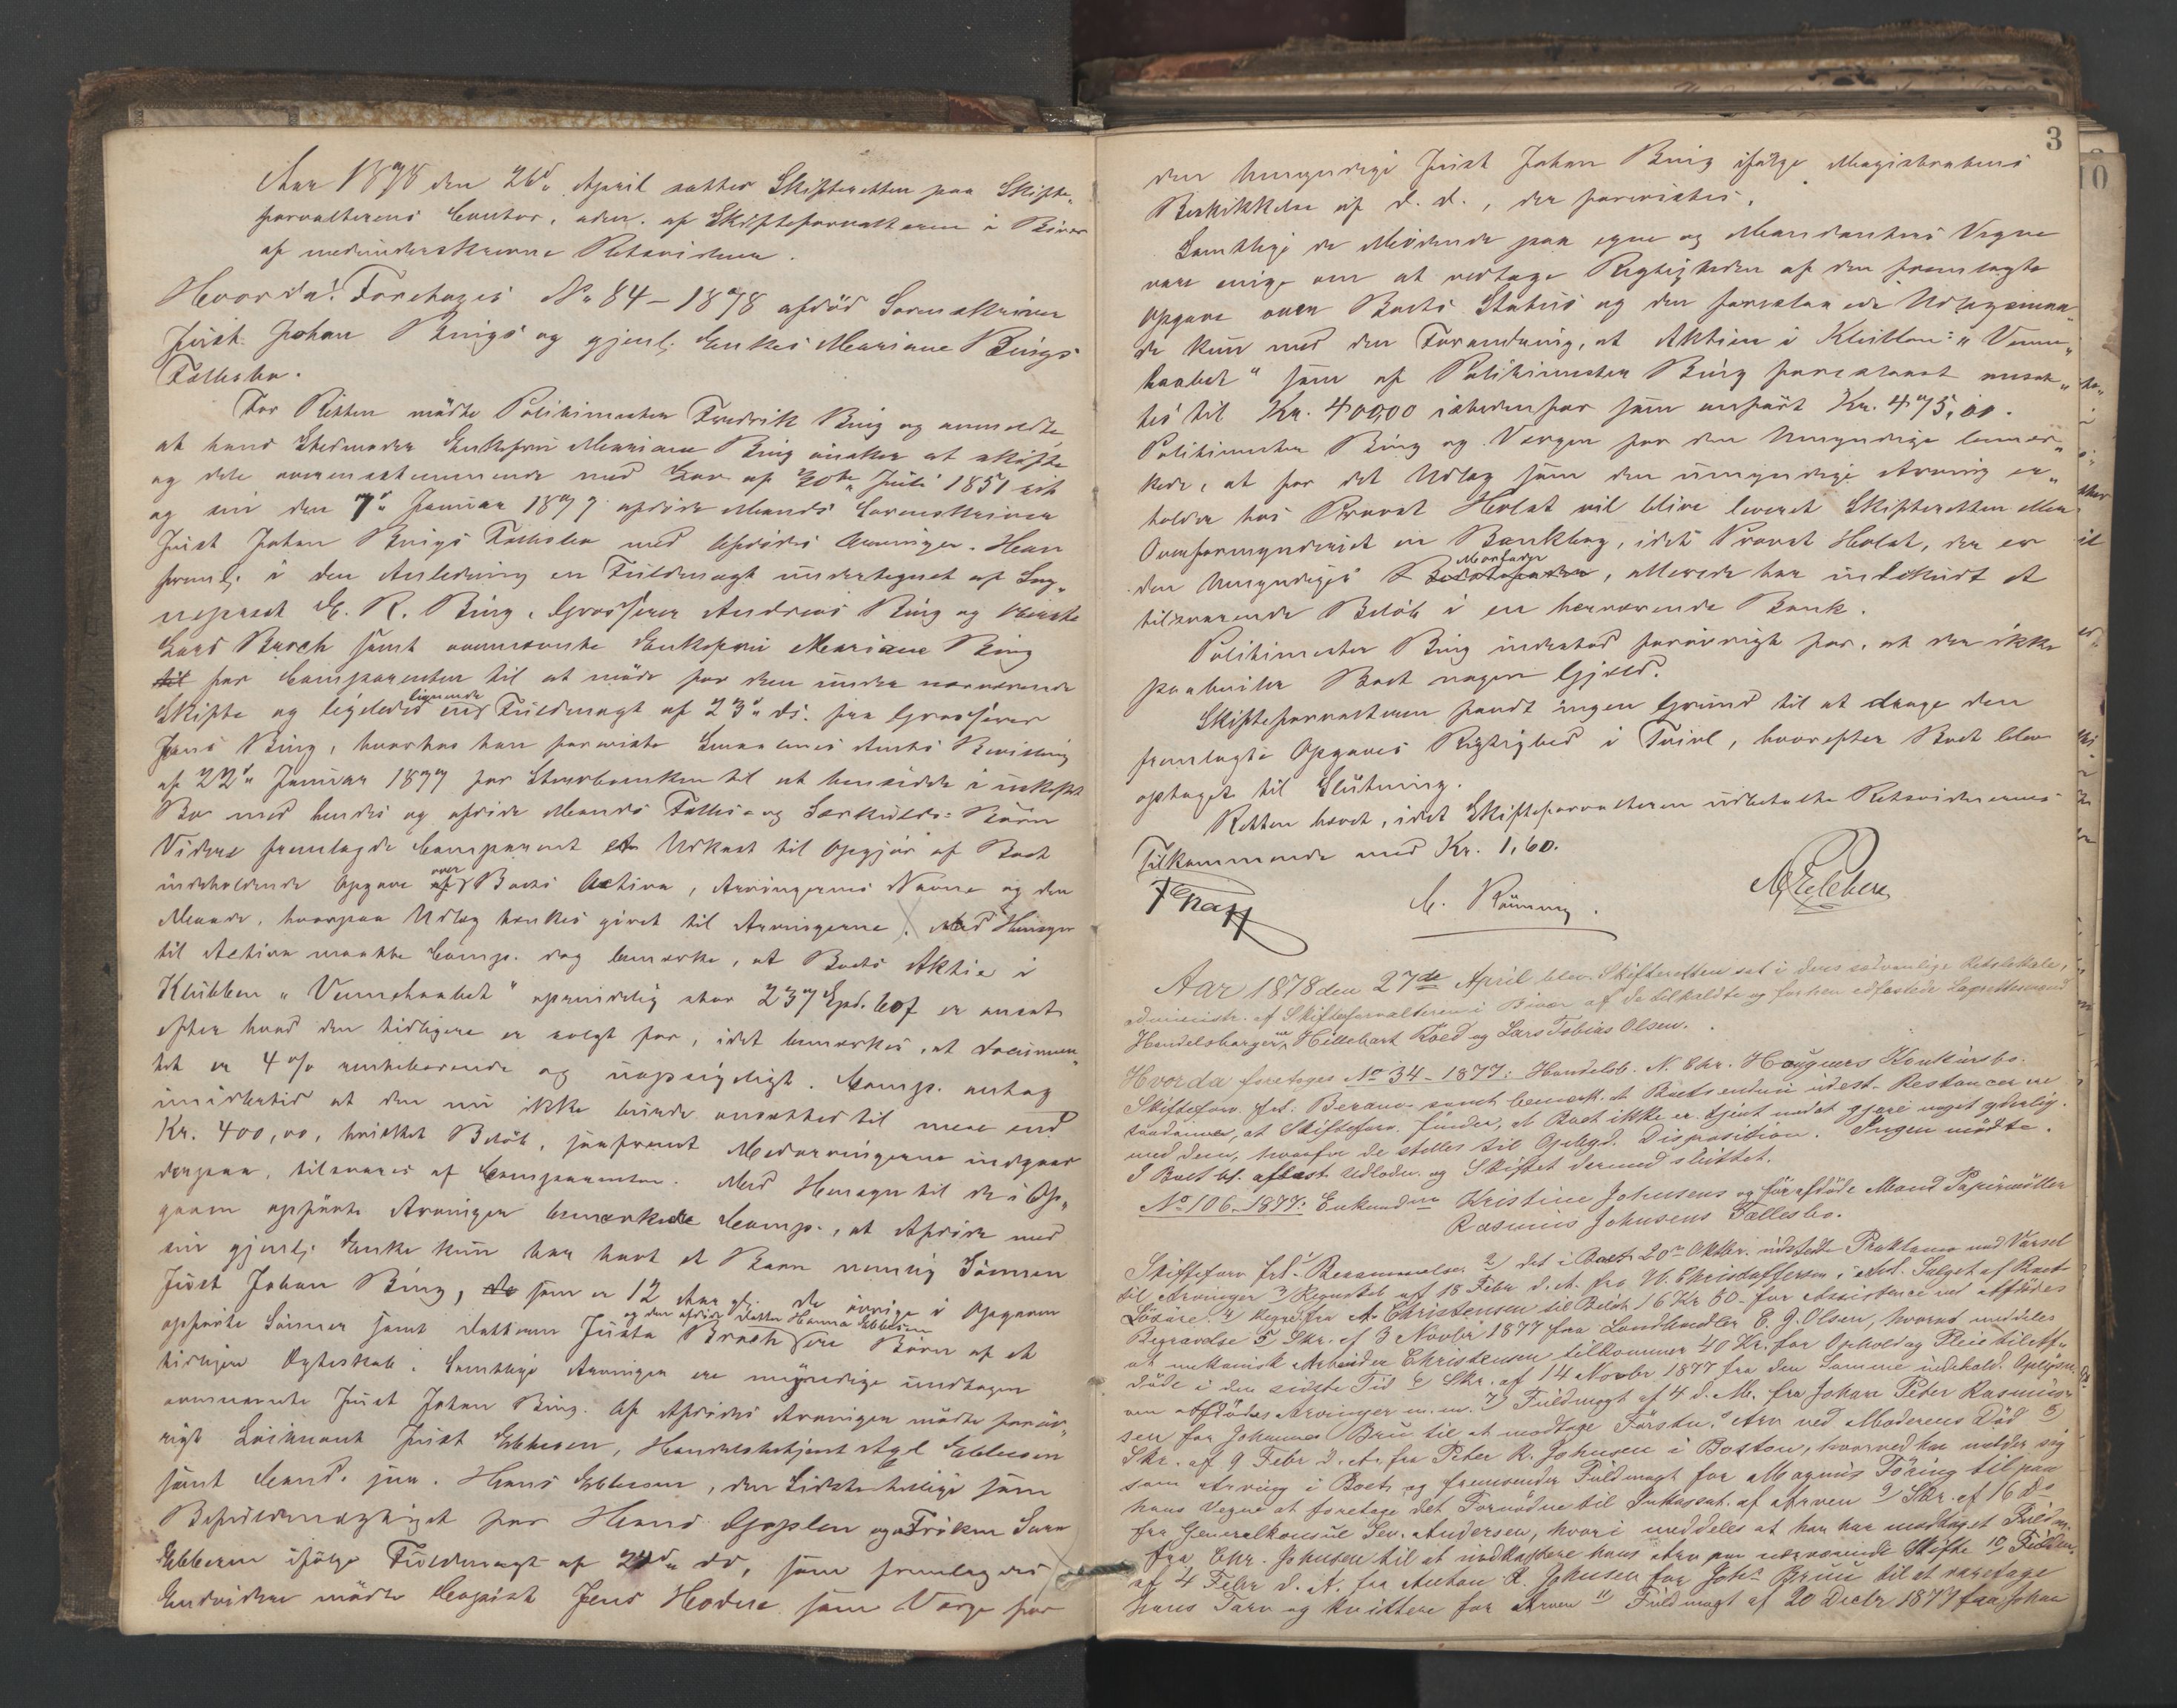 Aar 1878 den 26d April sattes Skifteretten paa Skifte„
forvalterens Contor, adm. af Skifteforvalteren i Bivær
af nedenunderskrevne Retsvidner.
Hvorda! Foretoges No 84-1878 afdød Sorenskriver
Just Johan Bings og gjenl. Enkes Mariane Bings
Fællesbo.
For Retten mødte Politimester Fredrik Bing og anmeldte,
at hans Stedmoder Enkefru Mariane Bing ønsker at skifte
og dele overensstemmende med Lov af 30te Juli 1851 sit
og sin den 7d Januar 1877 afdøde Mands Sorenskriver
Just Johan Bings Fællesbo med Afdødes Arvinger. Han
freml. i den Anledning en Fuldmagt undertegnet af Sog„
nepræst E. R. Bing, Grosserer Andreas Bing og
Lars Brock samt ovennævnte Enkefru Mariane Bing
til for Comparenten til at møde for dem under nærværende
Skifte og ligeledes lignende Fuldmagt af 23d ds. fra Grosserer
Jens Bing, hvorhos han foreviste Smaalenes Amts Bevilling
af 22d Januar 1877 for Stervboenken til at hensidde i uskiftet
Bo med hendes og afdøde Mands Fælles- og Særkulds-Børn
Videre fremlagde Comparent et Udkast til Opgjør af Boet
indeholdende Opgave over Boets Activa, Arvingernes Navne og den
Maade, hvorpaa Udlæg tænkes givet til Arvingerne. Med Hensyn
til Activa maatte Comp. dog bemærke, at Boets Aktie i
Klubben „Vennskabet" oprindelig stor 237 Spd. 60 f er ansat
efter hvad den tidligere er solgt for, idet bemærkes, at Documen„
tet er 4 % rentebærende og uopsigeligt. Comp. antog
imidlertid at den nu ikke burde ansættes til mere end
Kr. 400,00, hvilket Beløb, saafremt Medarvingerne indgaar
derpaa, tilsvares af Comparenten. Med Hensyn til de i Op„
gaven opførte Arvinger bemærkede Comp., at Afdøde med
sin gjenl. Enke kun har havt et Barn nemlig Sønnen
Just Johan Bing, som er 12 Aar gl. de øvrige i Opgaven
opførte Sønner samt Datteren Justa Brock og den afdøde Datter Hanna Ebbesen ere Børn af et
tidligere Ægteskab. Samtlige Arvinger ere myndige undtagen
ovennævnte Just Johan Bing. Af Afdødes Arvinger mødte forøv„
rigt Løitnant Just Ebbesen, Handelsbetjent Axel Ebbesen
samt Cand. jur. Hans Ebbesen, den Sidste tillige som
Befuldmægtiget for Hans Gjoplen og Frøken Sara
Ebbesen ifølge Fuldmagt af 24d ds, som fremlagdes
Endvidere mødte Copist Jens Hodne som Verge for
3
den Umyndige Just Johan Bing ifølge Magistratens
Beskikkelse af d. d., der forevistes.
Samtlige de Mødende paa egne og Mandanters Vegne
vare enige om at vedtage Rigtigheden af den fremlagte
Opgave over Boets Status og den foreslaaede Udlægsmaa„
de kun med den Forandring, at Aktien i Klubben: „Venn„
skabet" som af Politimester Bing foreslaaet ansat„
tes til Kr. 400,00 istedenfor som anført Kr. 475,00.
Politimester Bing og Vergen for den Umyndige bemær„
kede, at for det Udlæg som den umyndige Arving er„
holder hos Provst Holst vil blive leveret Skifteretten eller
Overformynderiet en Bankbog, idet Provst Holst, der er
den Umyndiges Morfader, allerede har indskudt et
tilsvarende Beløb i en herværende Bank.
Politimester Bing indestod forøvrigt for, at der ikke
paahviler Boet nogen Gjæld.
Skifteforvalteren fandt ingen Grund til at drage den
fremlagte Opgaves Rigtighed i Tvivl, hvorefter Boet blev
optaget til Slutning.
Retten hævet, idet Skifteforvalteren udbetalte Retsvidnernes
Tilkommende med Kr. 1,60.
C. Rønning.
Aar 1878 den 27de April blev Skifteretten sat i dens sædvanlige Retslokale,
administr. af Skifteforvalteren i Bivær af de tilkaldte og forhen edfæstede Lagrettesmænd
Handelsborgerne Hillebart Röed og Lars Tobias Olsen.
Hvorda foretoges No 34-1877: Handelsb. N. Chr. Haugners Konkursbo.
Skifteforv. frl. Beram. samt bemærk. at Boets endnu udest. Restancer ere
saadanne, at Skifteforv. finder, at Boet ikke er tjent med at gjøre noget yderlig.
med dem, hvorfor de stilles til Oplagd. Disposition. Ingen mødte.
I Boet bl. aflæst Udlodn. og Skiftet dermed sluttet.
No 106-1877: Enkemadme Kristine Johnsens og før afdøde Mand Papirmøller
Rasmus Johnsens Fællesbo.
Skifteforv. frl. 1 Berammelse 2) det i Boet 20de Oktbr. udstedte Proklama med Varsel
til Arvinger 3) Regnskab af 18 Febr d. A. fra W. Christoffersen i Anl. Salget af Boets
Løsøre. 4) Regng. fra A. Christensen til Beløb 16 Kr 50- for Assistence ved Afdødes
Begravelse 5 Skr. af 3 Novbr 1877 fra Landhandler E. G. Olsen, hvorved meddeles
at mekanisk Arbeider Christensen tilkommer 40 Kr. for Ophold og Pleie til Af„
døde i den sidste Tid 6) Skr. af 14 Novbr 1877 fra den Samme indehold. Oplysn.
om Afdødes Arvinger m.m. 7) Fuldmagt af 4 d. M. fra Johan Peter Rasmus„
sen for Johannes Bru til at modtage Førstn.s Arv ved Moderens Død 8)
Skr. af 9 Febr d. A. fra Peter R. Johnsen i Boston, hvorved han melder sig
som Arving i Boet og fremsender Fuldmagt for Magnus Föring til paa
hans Vegne at foretage det Fornødne til Inkassat. af Arven 9) Skr. af 16 ds
fra Generalkonsul Sev. Andersen, hvori meddeles at han har modtaget Fuldm.
fra Chr. Johnsen til at indkassere hans Arv paa nærværende Skifte 10) Fuldm.
af 4 Febr d. A. fra Anton R. Johnsen for Johs Bruu til at varetage
hans Tarv og kvittere for Arven 11) Fuldmagt af 20 Decbr 1877 fra Johan